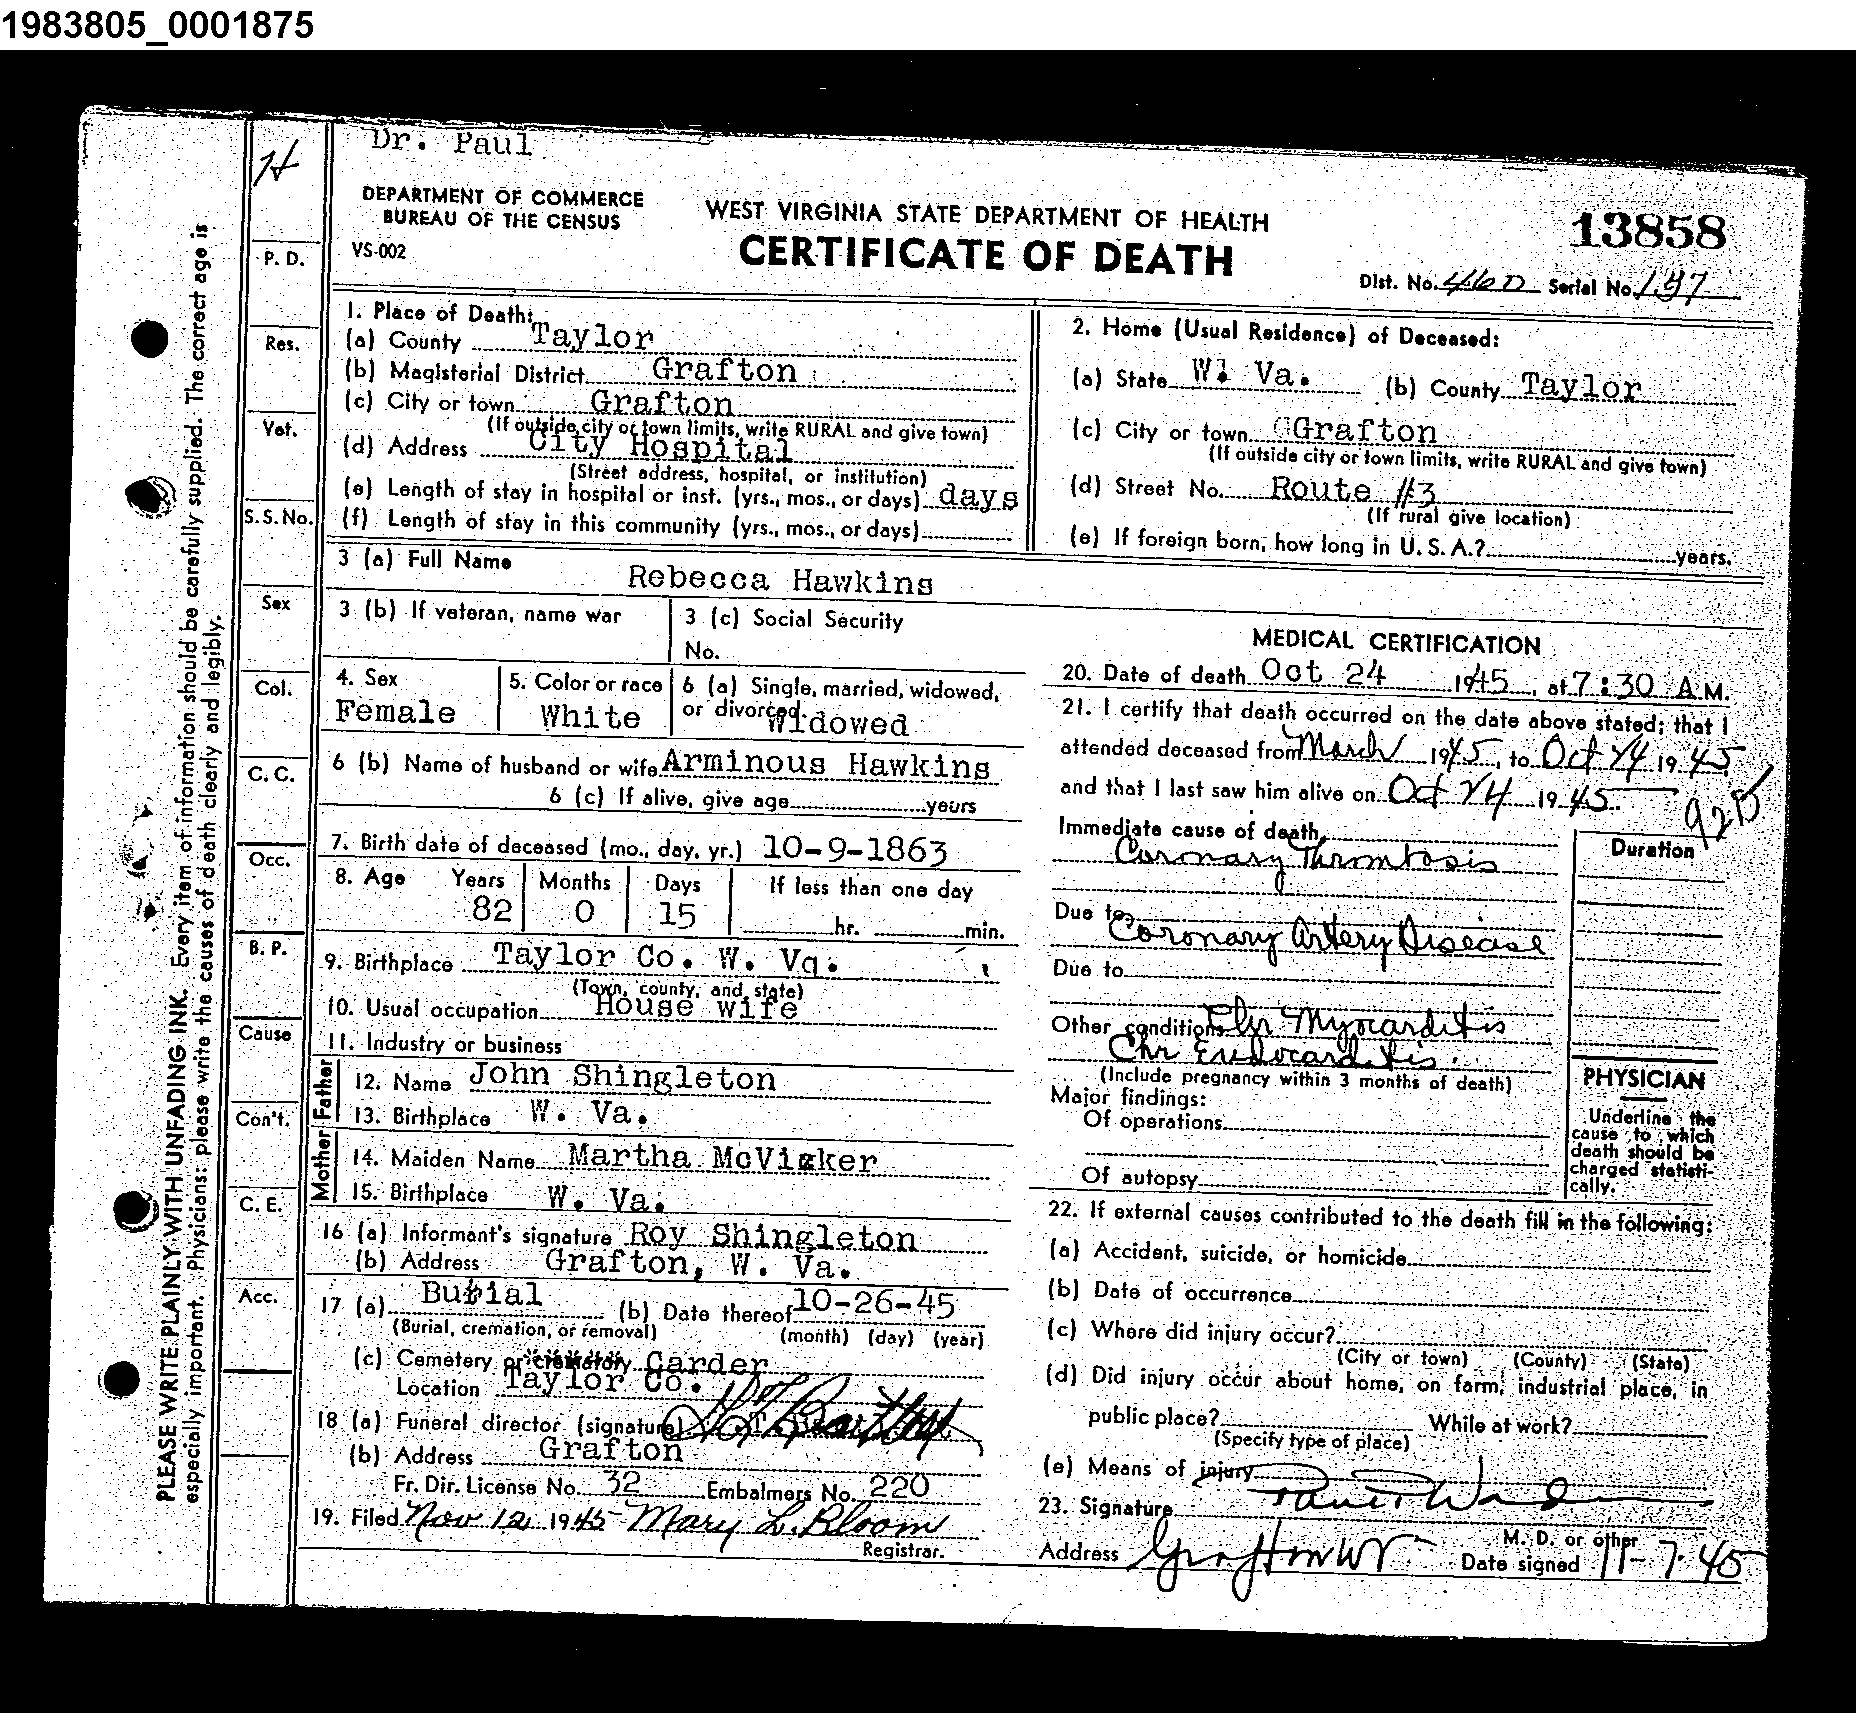 1983805_0001875
Dr. Paul
H
DEPARTMENT OF COMMERCE
BUREAU OF THE CENSUS
VS-002
WEST VIRGINIA STATE DEPARTMENT OF HEALTH
CERTIFICATE OF DEATH
13858
Dist. No. 460 Serial No. 157
1. Place of Death:
(a) County Taylor
(b) Magisterial District Grafton
(c) City or town Grafton
(If outside city or town limits, write RURAL and give town)
(d) Address City Hospital
(Street address, hospital, or institution)
(e) Length of stay in hospital or inst. (yrs., mos., or days) days
(f) Length of stay in this community (yrs., mos., or days)
2. Home (Usual Residence) of Deceased:
(a) State W. Va. (b) County Taylor
(c) City or town Grafton
(If outside city or town limits, write RURAL and give town)
(d) Street No. Route #3
(If rural give location)
(e) If foreign born, how long in U. S. A.? years.
3 (a) Full Name Rebecca Hawkins
3 (b) If veteran, name war
3 (c) Social Security
No.
4. Sex
Female
5. Color or race
White
6 (a) Single, married, widowed,
or divorced Widowed
6 (b) Name of husband or wife Arminous Hawkins
6 (c) If alive, give age years
7. Birth date of deceased (mo., day, yr.) 10-9-1863
8. Age Years Months Days If less than one day
82 0 15 hr. min.
9. Birthplace Taylor Co. W. Va.
(Town, county, and state)
10. Usual occupation House wife
11. Industry or business
Father
12. Name John Shingleton
13. Birthplace W. Va.
Mother
14. Maiden Name Martha McVicker
15. Birthplace W. Va.
16 (a) Informant's signature Roy Shingleton
(b) Address Grafton, W. Va.
17 (a) Burial (b) Date thereof 10-26-45
(Burial, cremation, or removal) (month) (day) (year)
(c) Cemetery or crematory Carder
Location Taylor Co.
18 (a) Funeral director (signature)
(b) Address Grafton
Fr. Dir. License No. 32 Embalmers No. 220
19. Filed Nov 12 1945 Mary L. Bloom
Registrar.
MEDICAL CERTIFICATION
20. Date of death Oct 24 1945, at 7:30 A.M.
21. I certify that death occurred on the date above stated; that I
attended deceased from March 1945, to Oct 24 1945
and that I last saw him alive on Oct 24 1945
92B
Immediate cause of death
Coronary Thrombosis
Duration
Due to
Coronary Artery Disease
Due to
Other conditions Chr Myocarditis
Chr Endocarditis.
(Include pregnancy within 3 months of death)
Major findings:
Of operations
Of autopsy
PHYSICIAN
Underline the
cause to which
death should be
charged statisti-
cally.
22. If external causes contributed to the death fill in the following:
(a) Accident, suicide, or homicide
(b) Date of occurrence
(c) Where did injury occur?
(City or town) (County) (State)
(d) Did injury occur about home, on farm, industrial place, in
public place? While at work?
(Specify type of place)
(e) Means of injury
23. Signature
M. D. or other
Address Grafton W V Date signed 11-7-45
P. D.
Res.
Vet.
S. S. No.
Sex
Col.
C. C.
Occ.
B. P.
Cause
Con't.
C. E.
Acc.
PLEASE WRITE PLAINLY WITH UNFADING INK. Every item of information should be carefully supplied. The correct age is
especially important. Physicians: please write the causes of death clearly and legibly.